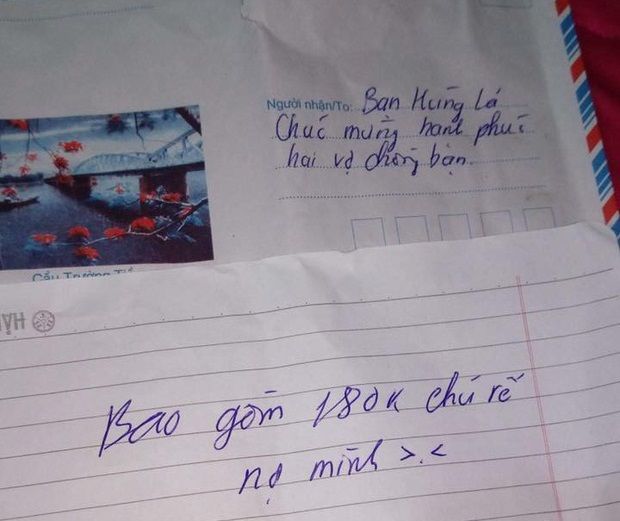 Người nhận/To: Bạn Hùng Lá
Chúc mừng hạnh phúc
hai vợ chồng bạn.
Cầu Trường Tiền
Bao gồm 180k chú rể
nợ mình >.<